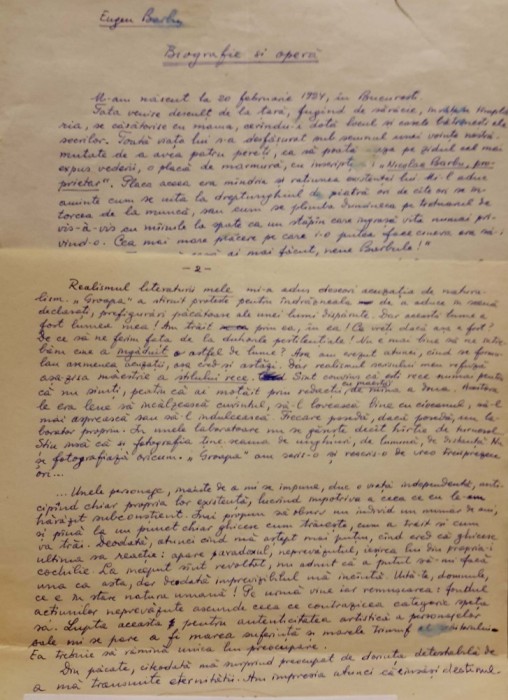 Eugen Barbu
Biografie si operă
M-am născut la 20 februarie 1924, în București.
Tata venise desculț de la țară, fugind de sărăcie, învățase tîmplă-
ria, se căsătorise cu mama, cerîndu-i dotă locul și casele bătrînești ale
socrilor. Toată viața lui s-a desfășurat sub semnul unei voințe nestră-
mutate de a avea patru pereți, ca să poată pe zidul cel mai
expus vederii, o placă de marmură, cu inscripția: „Nicolae Barbu, pro-
prietar". Placa aceea era mîndria și rațiunea existenței lui. Mi-l aduc
aminte cum se uita la dreptunghiul de piatră ori de cîte ori se în-
torcea de la muncă, sau cum se plimba duminica pe trotuarul de
vis-à-vis cu mîinile la spate ca un stăpîn care îngrașă vita numai pri-
vind-o. Cea mai mare plăcere pe care i-o putea face cineva era să-i
ai mai făcut, nene Barbule!"
- 2 -
Realismul literaturii mele mi-a adus deseori acuzația de natura-
lism. „Groapa" a stîrnit proteste pentru îndrăzneala de a aduce în scenă
declasați, prefigurări păcătoase ale unei lumi dispărute. Dar această lume a
fost lumea mea! Am trăit prin ea, în ea! Ce vreți dacă așa a fost?
De ce să ne ferim fața de la duhorile pestilențiale? Nu e mai bine să ne între-
băm cine a îngăduit astfel de lume? Așa am crezut atunci, cînd se formu-
lau asemenea acuzații, așa cred și astăzi. Dar realismul meu refuza
așa-zisa măiestrie a stilului rece. Sînt convins că este rece numai pentru
că nu simți, pentru că ai mîțâit prin redacții, cu manșoane, de mîna a doua. Acestora
le era lene să încălzească cuvîntul, să-l lovească bine cu ciocanul, să-l
mai asprească sau să-l îndulcească. Fiecare posedă, dacă posedă, un la-
borator propriu. În unele laboratoare nu se găsește decît hîrtie de turnesol.
Știu însă că și fotografia ține seama de unghiuri, de lumină, de distanță. Nu
se fotografiază oricum. „Groapa" am scris-o și rescris-o de vreo treisprezece
ori...
... Unele personaje, înainte de a mi se impune, duc o viață independentă, anti-
cipînd chiar propria lor existență, lucrînd împotriva a ceea ce eu le-am
hărăzit subconștient. Îmi propun să observ un individ un număr de ani,
și pînă la un punct chiar ghicesc cum trăiește, cum a trăit și cum
va trăi. Deodată, atunci cînd mă aștept mai puțin, cînd cred că ghicesc
ultima sa reacție: apare paradoxul, neprevăzutul, ieșirea lui din propria-i
cochilie. La început sînt revoltat, nu admit că a putut să-mi facă
una ca asta, dar deodată imprevizibilul mă încîntă. Uită-te, domnule,
ce e în stare natura umană! Pe urmă vine iar remușcarea: fondul
acțiunilor neprevăzute ascunde ceea ce contrazicea categoric speța
sa. Lupta aceasta pentru autenticitatea artistică a personajelor
sale mi se pare a fi marea suferință și marele triumf al
Ea trebuie să rămînă unica lui preocupare.
Din păcate, cîteodată mă surprind preocupat de dorința detestabilă de
a mă transmite eternității. Am impresia atunci că însăși